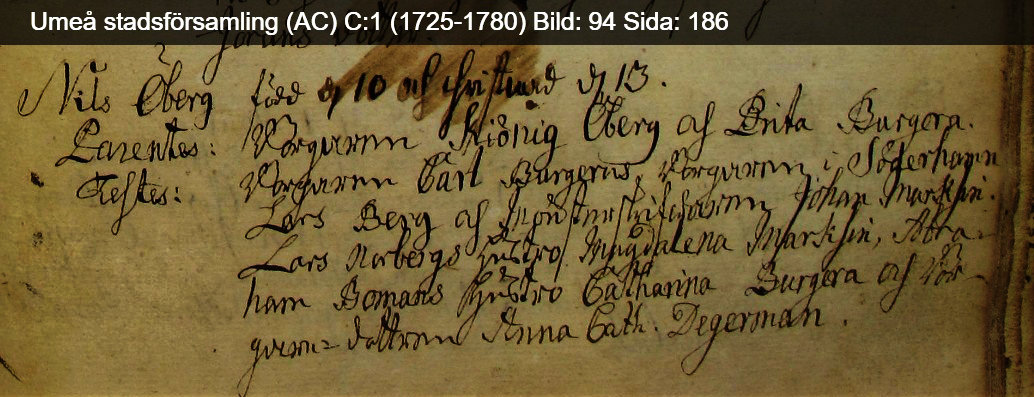 Umeå stadsförsamling (AC) C:1 (1725-1780) Bild: 94 Sida: 186
Nils Öberg född d 10 och christnad d 13.
Parentes: Borgaren Öberg och Brita Burgera.
Testes: Borgaren Carl Burgerus, Borgaren i Söderhamn
Lars Berg och Mönsterskrifvaren Johan Marklin.
Lars Norbergs Hustro Magdalena Marklin, Abra-
ham Bomans Hustro Catharina Burgera och Bor-
gare-dottren Anna Cath. Degerman.